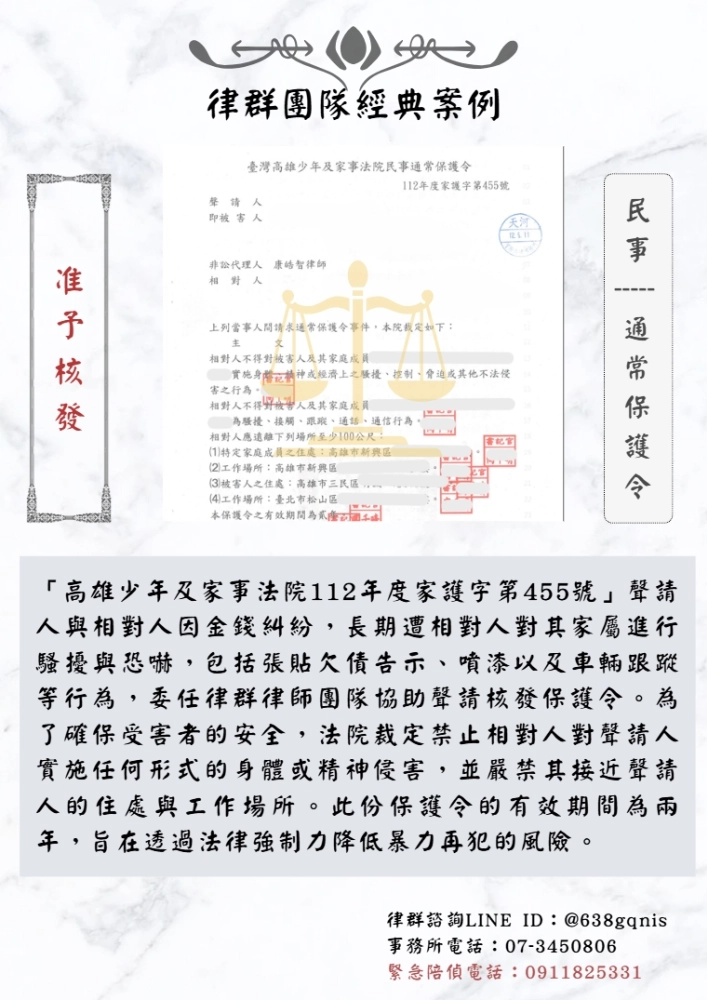 律群團隊經典案例
准予核發
臺灣高雄少年及家事法院民事通常保護令
112年度家護字第455號
聲請人
即被害人
天河
非訟代理人 康皓智律師
相對人
上列當事人間請求通常保護令事件,本院裁定如下:
主文
相對人不得對被害人及其家庭成員
實施身體、精神或經濟上之騷擾、控制、脅迫或其他不法侵
害之行為。
相對人不得對被害人及其家庭成員
為騷擾、接觸、跟蹤、通話、通信行為。
相對人應遠離下列場所至少100公尺:
(1)特定家庭成員之住處:高雄市新興區
(2)工作場所:高雄市新興區
(3)被害人之住處:高雄市三民區
(4)工作場所:臺北市松山區
本保護令之有效期間為貳
書記官
書記官
書記官
民事-----通常保護令
「高雄少年及家事法院112年度家護字第455號」聲請
人與相對人因金錢糾紛,長期遭相對人對其家屬進行
騷擾與恐嚇,包括張貼欠債告示、噴漆以及車輛跟蹤
等行為,委任律群律師團隊協助聲請核發保護令。為
了確保受害者的安全,法院裁定禁止相對人對聲請人
實施任何形式的身體或精神侵害,並嚴禁其接近聲請
人的住處與工作場所。此份保護令的有效期間為兩
年,旨在透過法律強制力降低暴力再犯的風險。
律群諮詢LINE ID:@638gqnis
事務所電話:07-3450806
緊急陪偵電話:0911825331